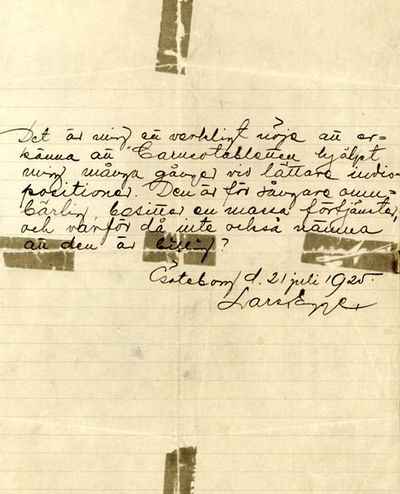 Det är mig en verkligt nöje att er-
känna att "Carusotabletten hjälpt
mig många gånger vid lättare indis-
positioner. Den är för sångare oum-
bärlig, besitter en massa förtjänster,
och varför då inte också nämna
att den är billig?
Göteborg d. 21 juli 1925.
Lars